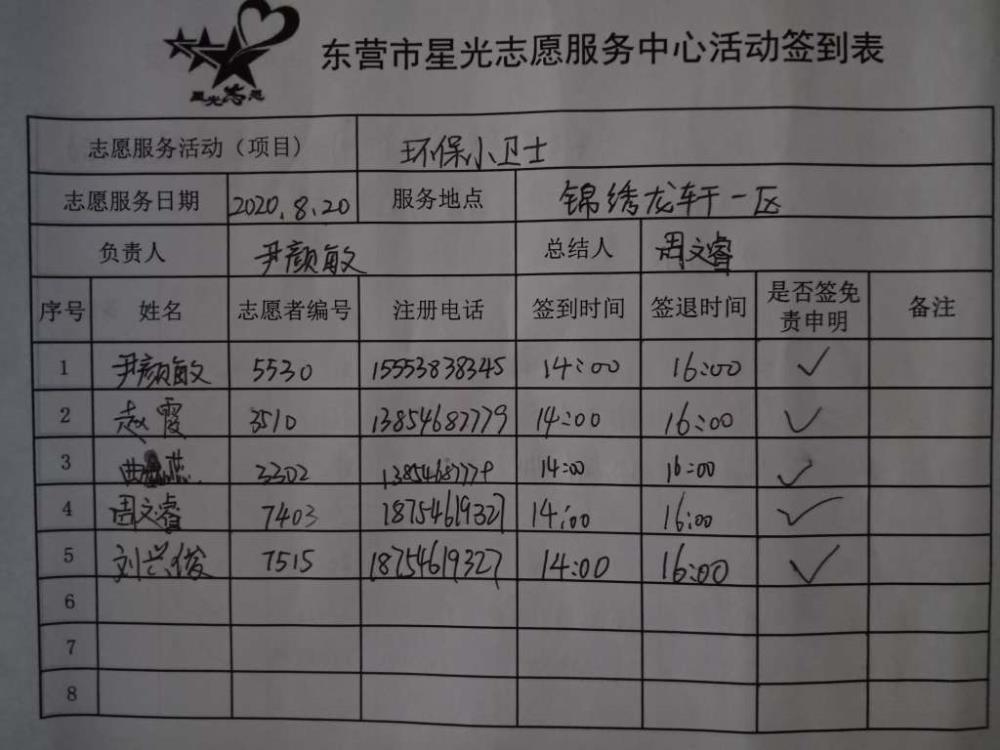 星光志愿
东营市星光志愿服务中心活动签到表
志愿服务活动（项目） 环保小卫士
志愿服务日期 2020.8.20 服务地点 锦绣龙轩一区
负责人 尹颜敏 总结人 周文睿
序号 姓名 志愿者编号 注册电话 签到时间 签退时间 是否签免责申明 备注
1 尹颜敏 5530 15553838345 14:00 16:00 ✓
2 赵霞 3510 13854687779 14:00 16:00 ✓
3 曲燕 3302 13854687779 14:00 16:00 ✓
4 周文睿 7403 18754619327 14:00 16:00 ✓
5 刘兴俊 7515 18754619327 14:00 16:00 ✓
6
7
8